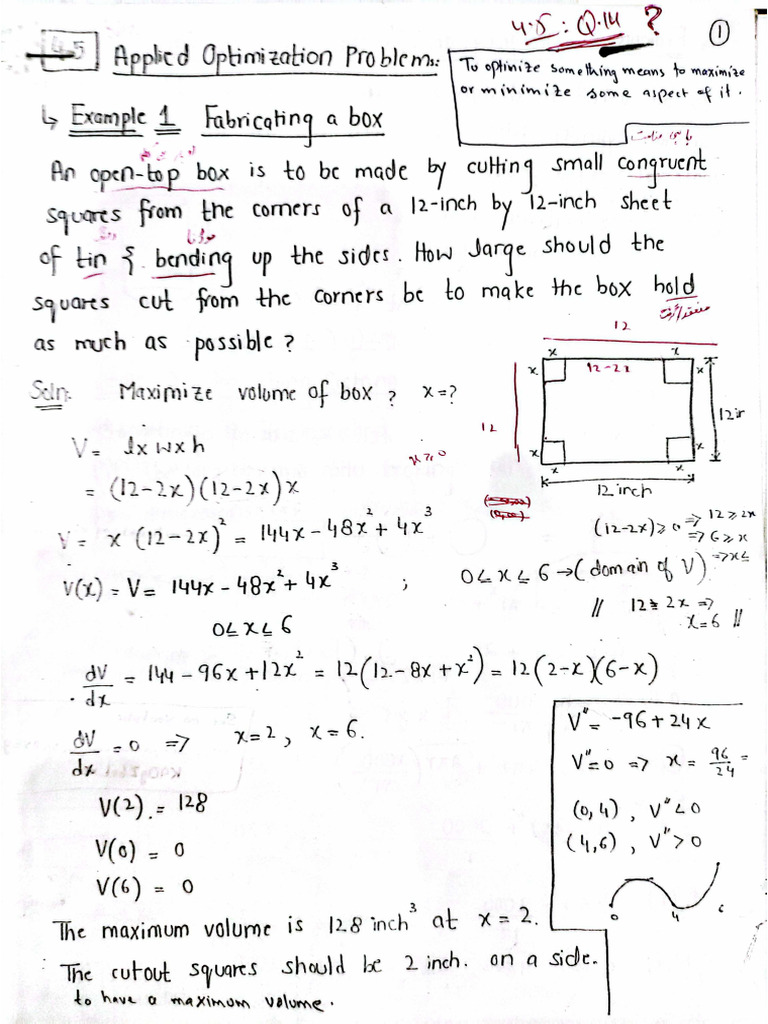 4.5 : Q.14 ?
1
4.5 Applied Optimization Problems:
To optinize something means to maximize
or minimize some aspect of it.
↳ Example 1 Fabricating a box
An open-top box is to be made by cutting small congruent
squares from the corners of a 12-inch by 12-inch sheet
of tin & bending up the sides. How large should the
squares cut from the corners be to make the box hold
as much as possible?
12
x x
x 12-2x x
12
12in
x x
x x
12 inch
Soln: Maximize volume of box? x=?
V= l x w x h
x≥0
= (12-2x)(12-2x)x
V= x(12-2x)² = 144x-48x²+4x³
(12-2x)≥0 => 12≥2x
=> 6≥x
=> x≤
V(x)=V= 144x-48x²+4x³ ; 0≤x≤6 →(domain of V)
// 12≥2x =>
x=6 //
0≤x≤6
dV/dx = 144-96x+12x² = 12(12-8x+x²) = 12(2-x)(6-x)
dV/dx = 0 => x=2, x=6.
V(2) = 128
V(0) = 0
V(6) = 0
V"= -96+24x
V"=0 => x = 96/24 =
(0,4), V"<0
(4,6), V">0
0 4 6
The maximum volume is 128 inch³ at x=2.
The cutout squares should be 2 inch. on a side.
to have a maximum volume.